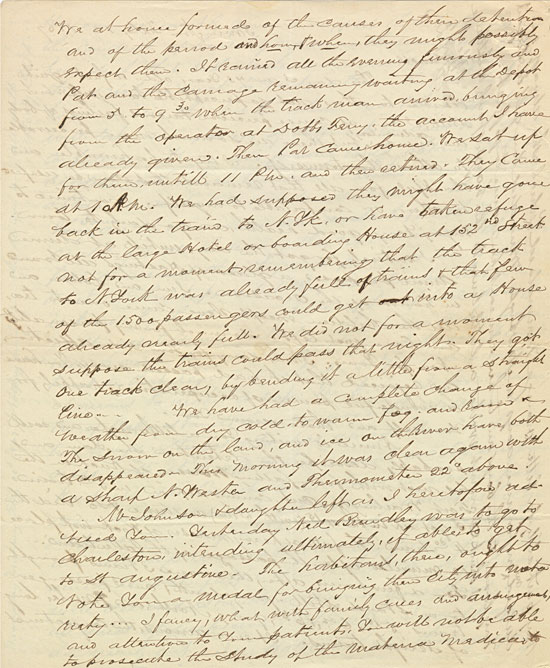 We at home formed of the causes of their detention
and of the period and hour when, they might possibly
expect them. It rained all the evening furiously and
Pat and the carriage remained waiting at the Depot
from 5 to 9 30 when the track man arrived, bringing
from the operator at Dobbs Ferry, the account I have
already given. Then Pat came home. We sat up
for them, untill 11 P.m. and then retired. They came
at 1 A.M. We had supposed they might have gone
back in the train to N.Yk. or have taken refuge
at the large Hotel or boarding House at 152nd Street
not for a moment remembering that the track
to N York was already full of trains & that few
of the 1500 passengers could get out into a House
already nearly full. We did not for a moment
suppose the trains could pass that night. They got
One track clear, by bending it a little from a Straight
Line — We have had a complete change of
weather from dry cold to warm fog. and &
The Snow on the land, and ice on the River have, both
disappeared — This morning it was clear again with
a Sharp N. Wester and Thermometer 22° above.
Mr Johnson & daughter left as I heretofore ad-
vised You. Yesterday Ned was to go to
Charleston, intending ultimately, if able to get,
to St augustine. The there, ought to
Vote You a medal for bringing their City into
I fancy, what with family cares and
and attention to Your patients, You will not be able
to prosecute the Study of the Materia Medica to